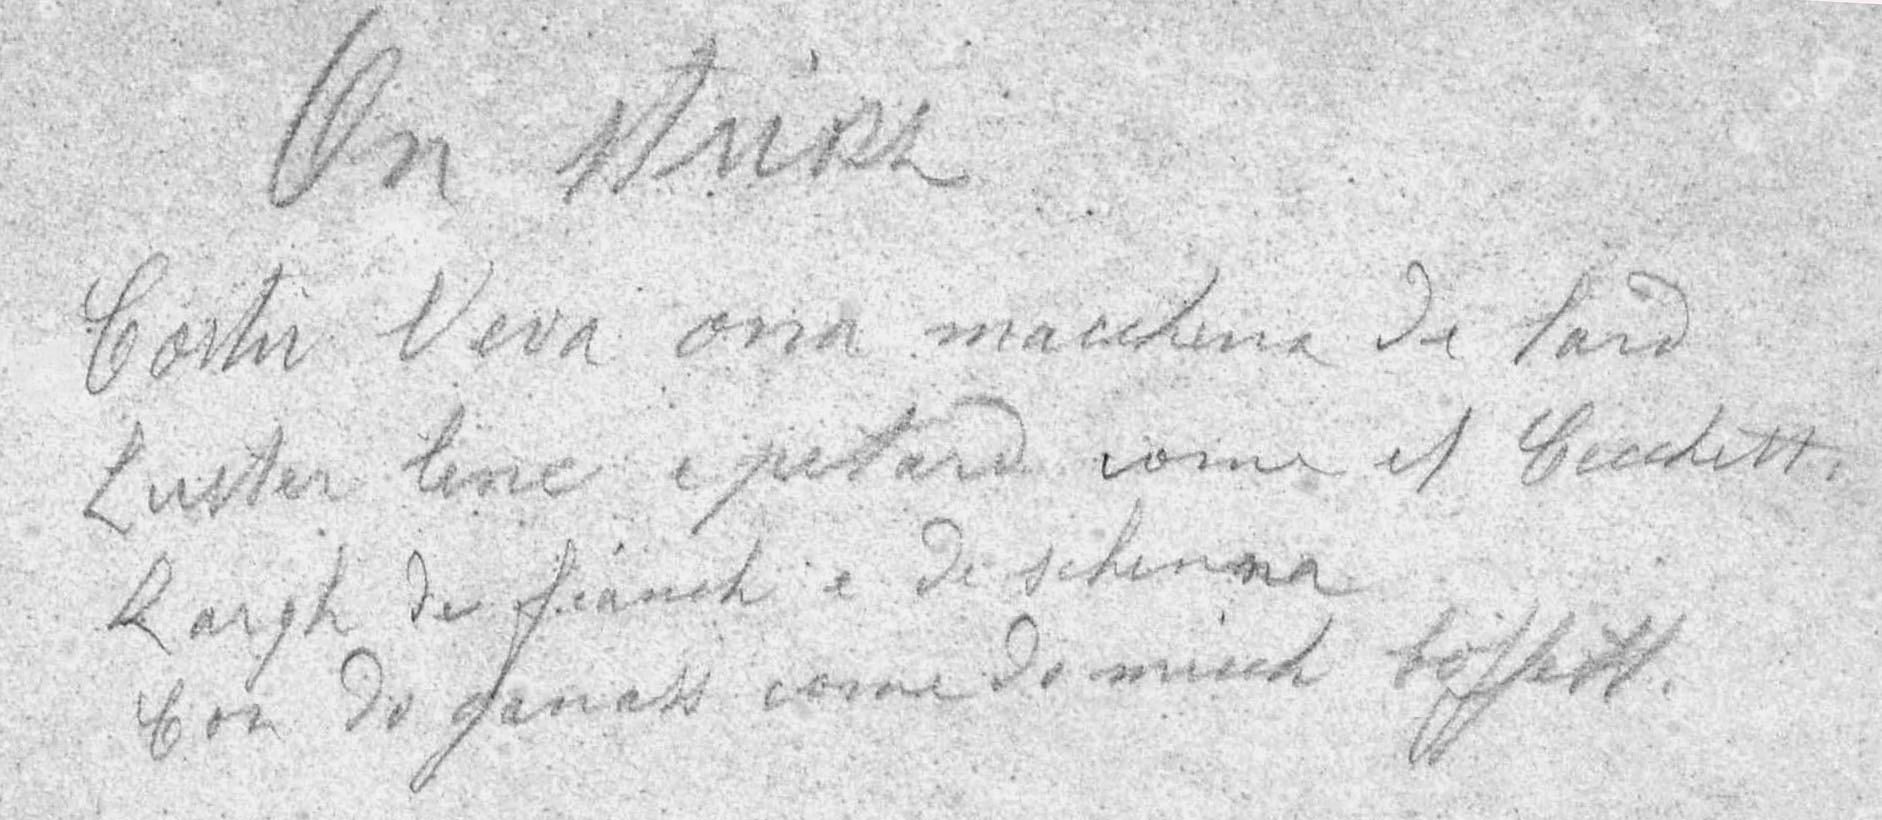 On striasc
Costu l'eva ona macchena de lard
Luster tenc e petard come el Cecchett.
Largh de fianch e de schenna
Con do ganass come do micch boffett.